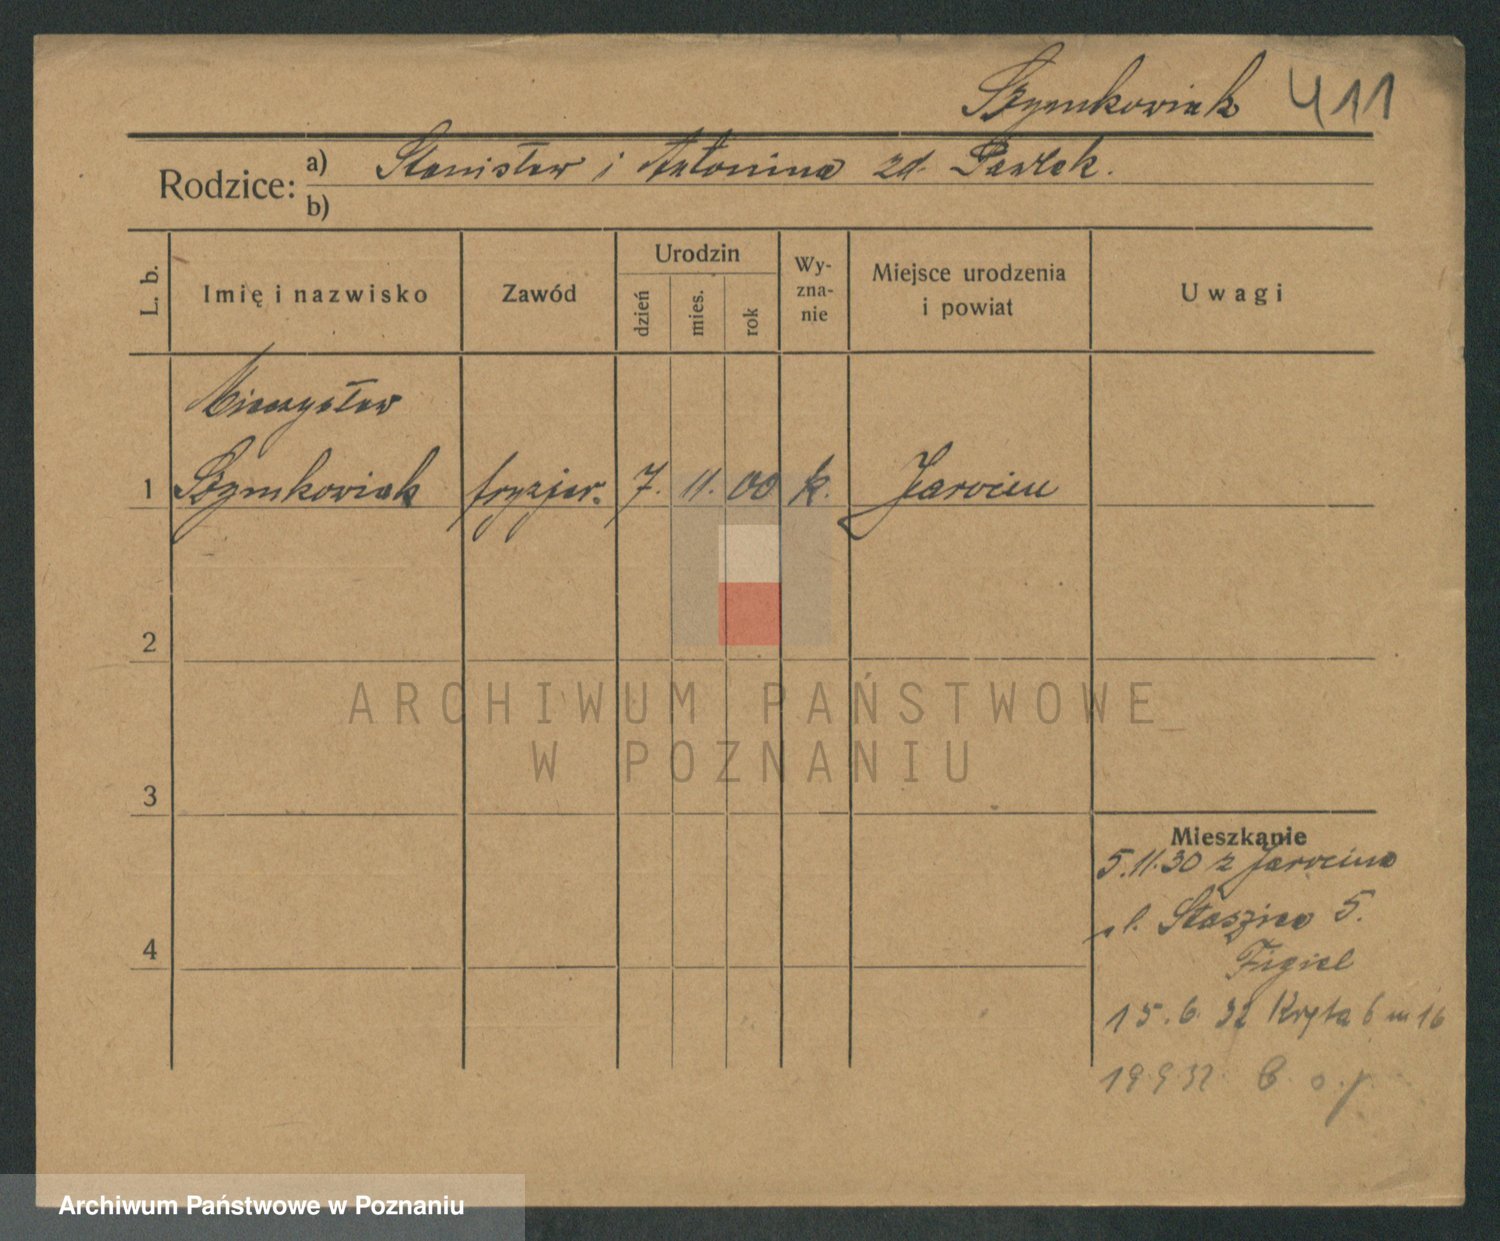 Szymkowiak 411
Rodzice: a) Stanisław i Antonina zd. Pawlak.
b)
L. b.
Imię i nazwisko
Zawód
Urodzin
dzień
mies.
rok
Wy-
zna-
nie
Miejsce urodzenia
i powiat
Uwagi
Mieczysław
1 Szymkowiak fryzjer. 7. 11. 00 k. Jarocin
2
ARCHIWUM PAŃSTWOWE
W POZNANIU
3
Mieszkanie
5.11.30 z Jarocina
pl. Staszica 5.
Figiel
4
15.6.32 Kręta 6 m 16
19 9 32
Archiwum Państwowe w Poznaniu